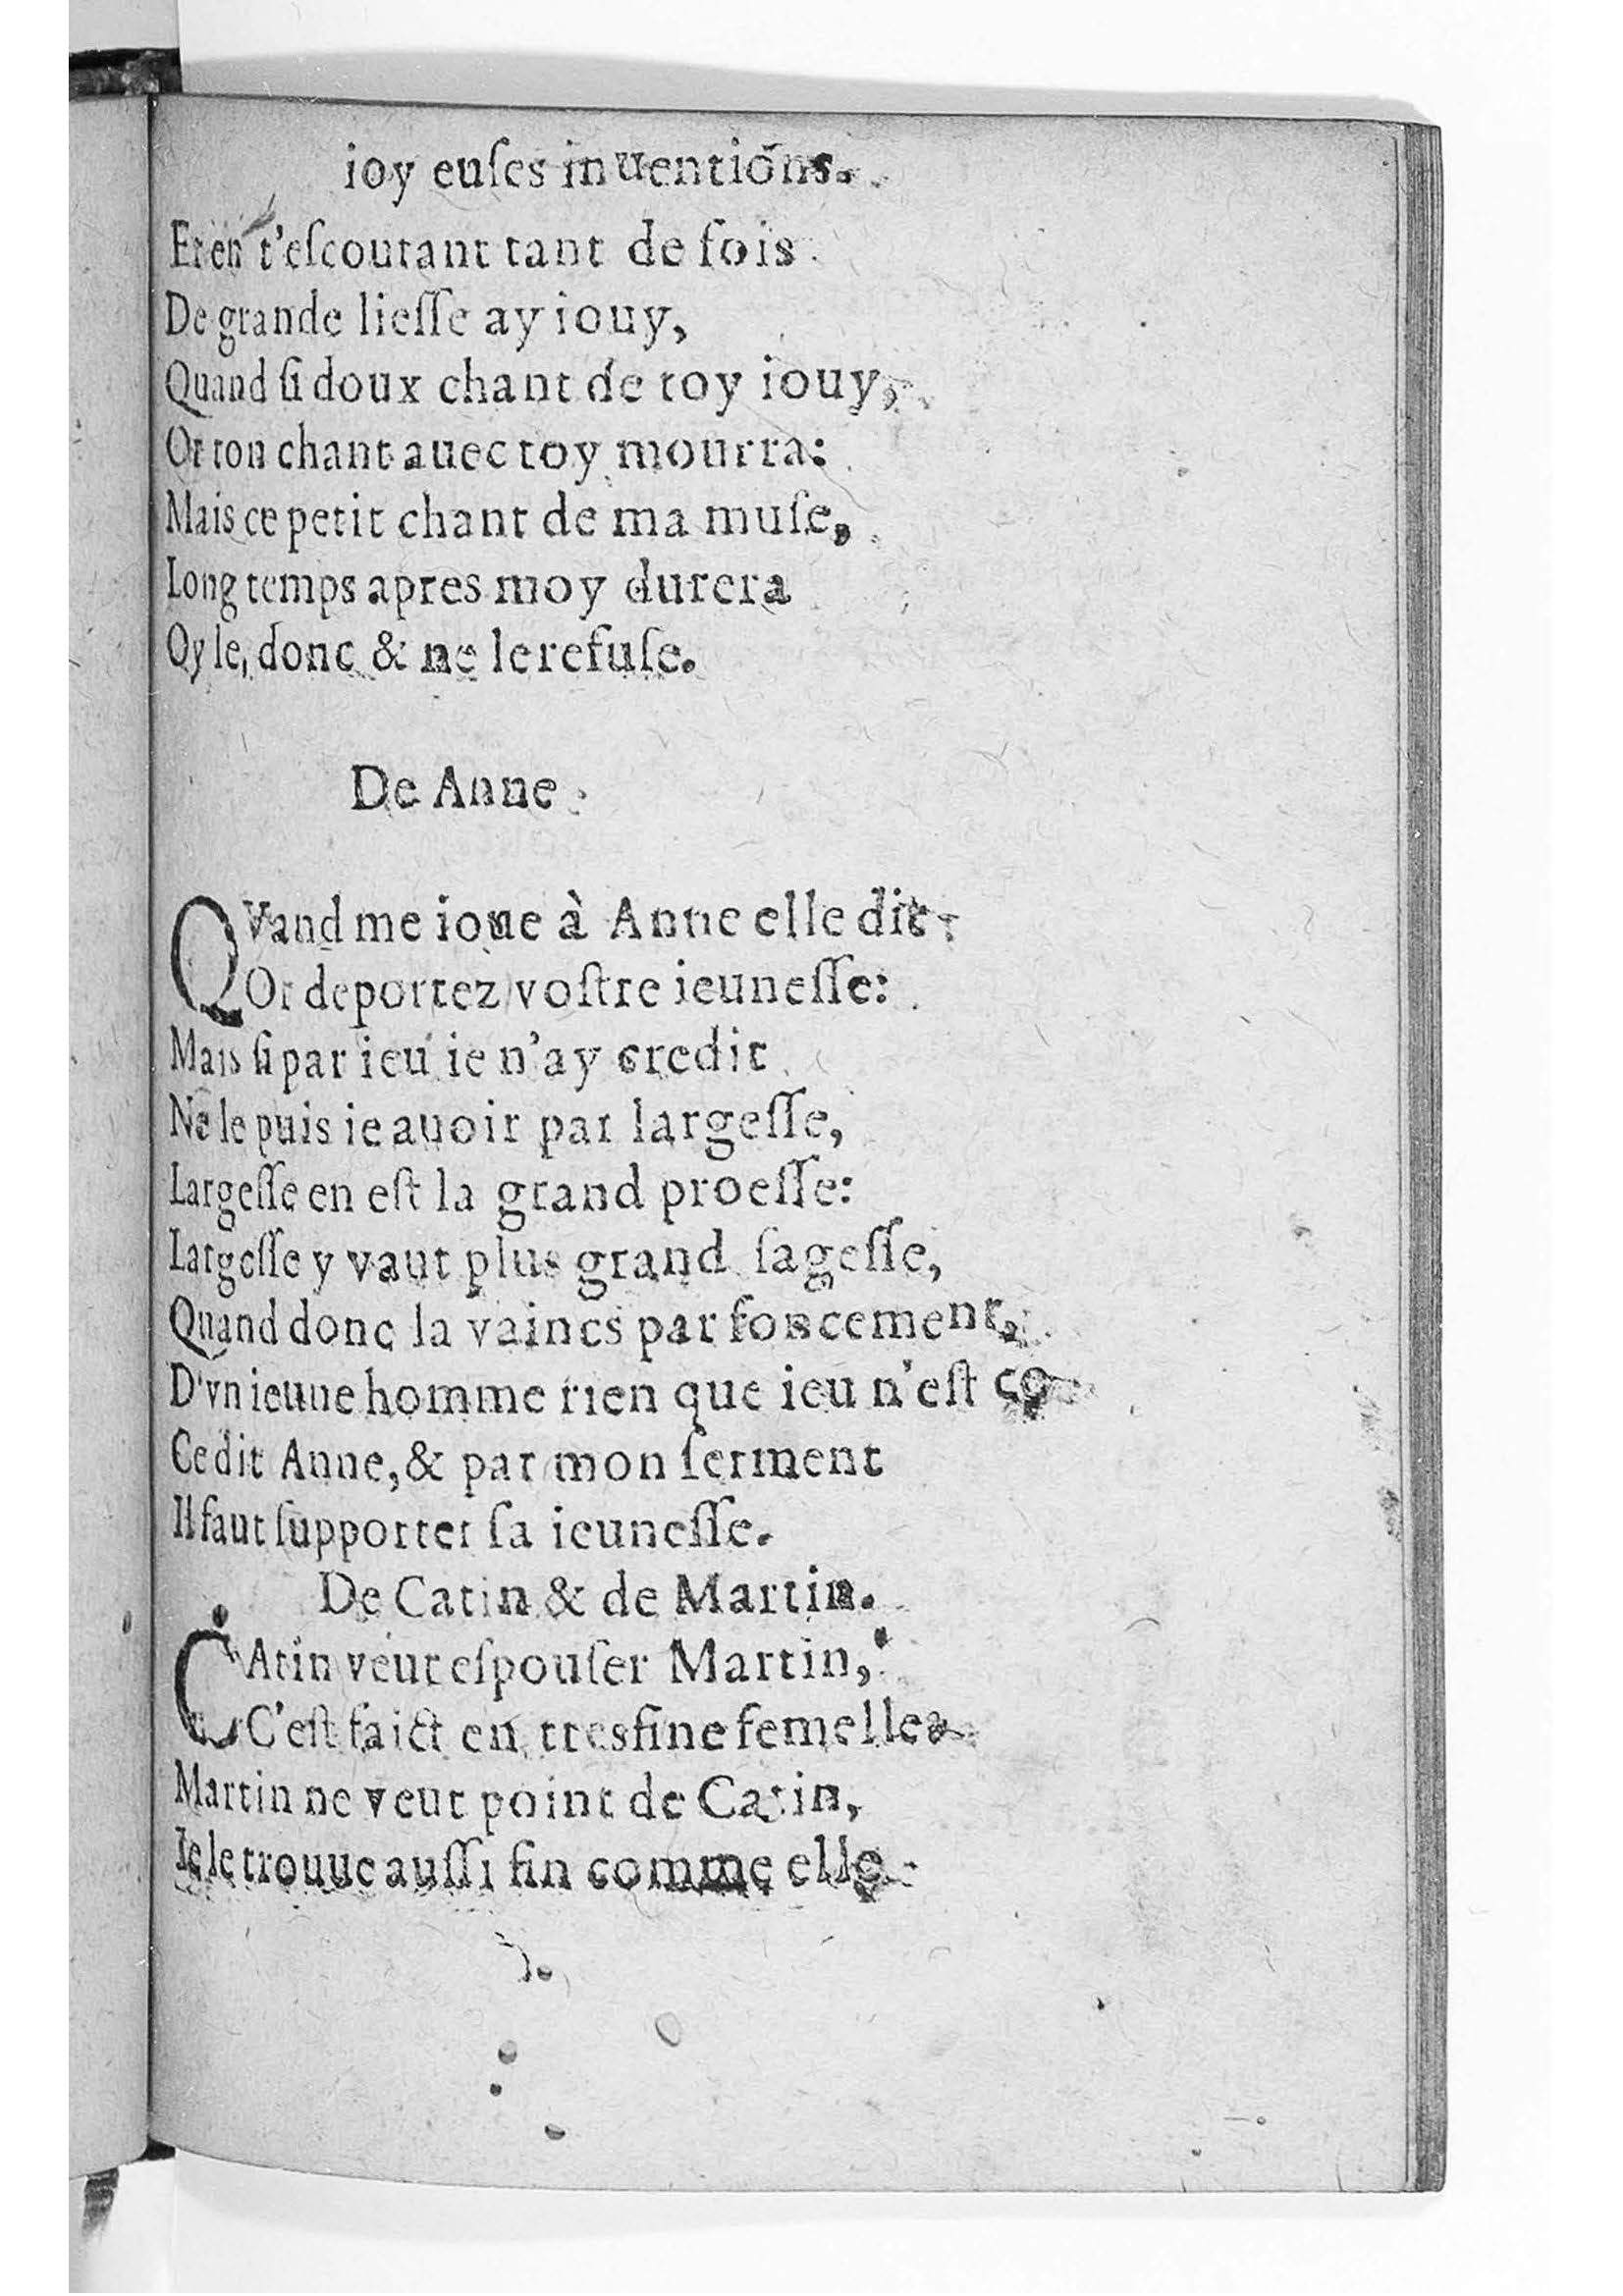 ioy euſes inuentions.
Et en t'eſcoutant tant de fois
De grande lieſſe ay iouy,
Quand ſi doux chant de toy iouy,
Or ton chant auec toy mourra:
Mais ce petit chant de ma muſe,
Long temps apres moy durera
Oy le, donc & ne le refuſe.
De Anne.
QVand me ioue à Anne elle dit
Or deportez voſtre ieuneſſe:
Mais ſi par ieu ie n'ay credit
Ne le puis ie auoir par largeſſe,
Largeſſe en eſt la grand proeſſe:
Largeſſe y vaut plus grand ſageſſe,
Quand donc la vaincs par foncement,
D'vn ieune homme rien que ieu n'eſt ço
Ce dit Anne, & par mon ſerment
Il faut ſupporter ſa ieuneſſe.
De Catin & de Martin.
CAtin veut eſpouſer Martin,
C'eſt faict en tresfine femelle
Martin ne veut point de Catin,
Ie le trouue auſſi fin comme elle.